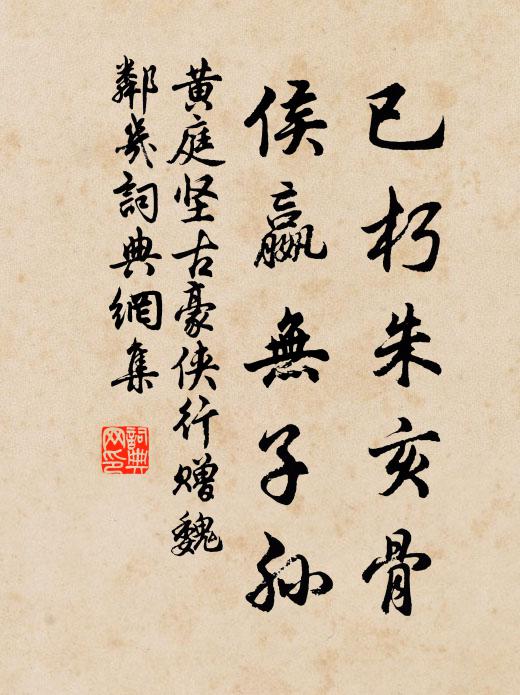 已朽朱亥骨
侯嬴無子孫
黄庭坚古豪侠行赠魏
鄰幾詞典網集
詞典
网印